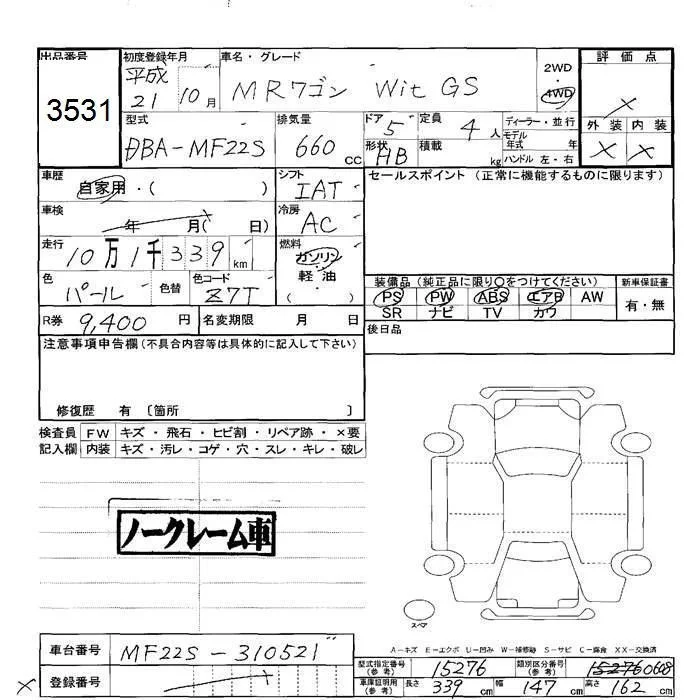 出品番号
3531
初度登録年月
平成
21 10月
車名・グレード
MRワゴン Wit GS
2WD
・4WD
評価点
×
外装 内装
× ×
型式
DBA-MF22S
排気量
660 cc
ドア 5
定員 4人
形状 HB
積載 kg
ディーラー・並行
モデル年式 年
ハンドル 左・右
車歴
自家用・( )
シフト
IAT
セールスポイント (正常に機能するものに限ります)
車検
年 月( 日)
冷房
AC
走行
10万1千339km
燃料
ガソリン
軽・油
( )
色
パール
色替
色コード
Z7T
装備品 (純正品に限り○をつけてください)
PS PW ABS エアB AW
SR ナビ TV カワ
新車保証書
有・無
R券 9,400円
名変期限 月 日
後日品
注意事項申告欄 (不具合内容等は具体的に記入して下さい)
修復歴 有 〔箇所 〕
検査員 FW キズ・飛石・ヒビ割・リペア跡・×要
記入欄 内装 キズ・汚レ・コゲ・穴・スレ・キレ・破レ
ノークレーム車
スペア
A-キズ E-エクボ U-凹み W-補修跡 S-サビ C-腐食 XX-交換済
車台番号 MF22S-310521
登録番号
×
型式指定番号(参考) 15276
類別区分番号(参考) 15276 0608
車庫証明用(参考) 長さ 339cm 幅 147cm 高さ 162cm